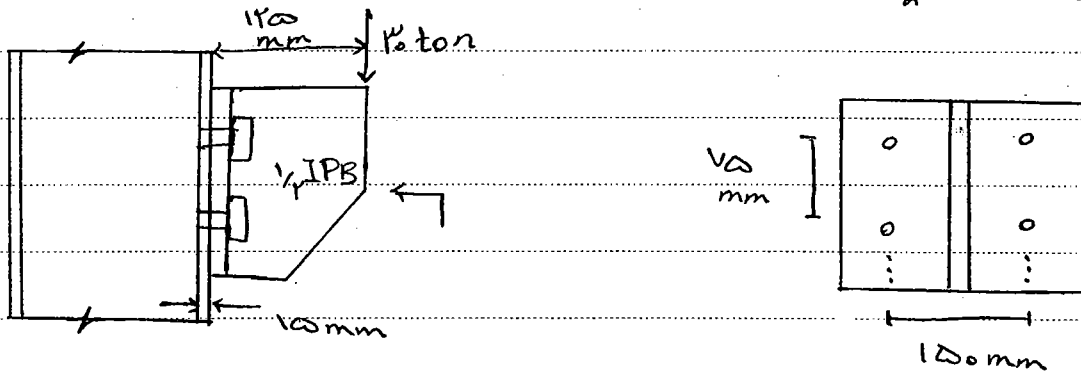 ۱۲۵
mm
۳۰ ton
۱/۲ IPB
۱۵ mm
۷۵
mm
۱۵۰ mm